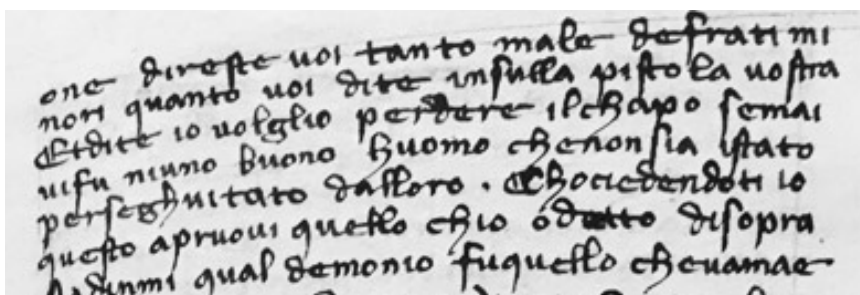 one direste voi tanto male defrati mi
nori quanto voi dite insulla pistola vostra
Etdite io volglio perdere ilchapo semai
vifu niuno buono huomo chenonsia istato
perseghuitato dalloro . Chociedendoti io
questo apruovi quello chio odetto disopra
qual demonio fuquello chevamae